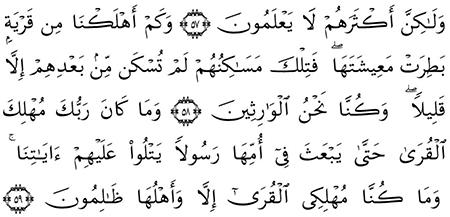 وَلَـٰكِنَّ أَكْثَرَهُمْ لَا يَعْلَمُونَ ﴿٥٧﴾ وَكَمْ أَهْلَكْنَا مِن قَرْيَةٍۭ
بَطِرَتْ مَعِيشَتَهَا ۖ فَتِلْكَ مَسَـٰكِنُهُمْ لَمْ تُسْكَن مِّنۢ بَعْدِهِمْ إِلَّا
قَلِيلًا ۖ وَكُنَّا نَحْنُ ٱلْوَٰرِثِينَ ﴿٥٨﴾ وَمَا كَانَ رَبُّكَ مُهْلِكَ
ٱلْقُرَىٰ حَتَّىٰ يَبْعَثَ فِىٓ أُمِّهَا رَسُولًا يَتْلُوا۟ عَلَيْهِمْ ءَايَـٰتِنَا ۚ
وَمَا كُنَّا مُهْلِكِى ٱلْقُرَىٰٓ إِلَّا وَأَهْلُهَا ظَـٰلِمُونَ ﴿٥٩﴾